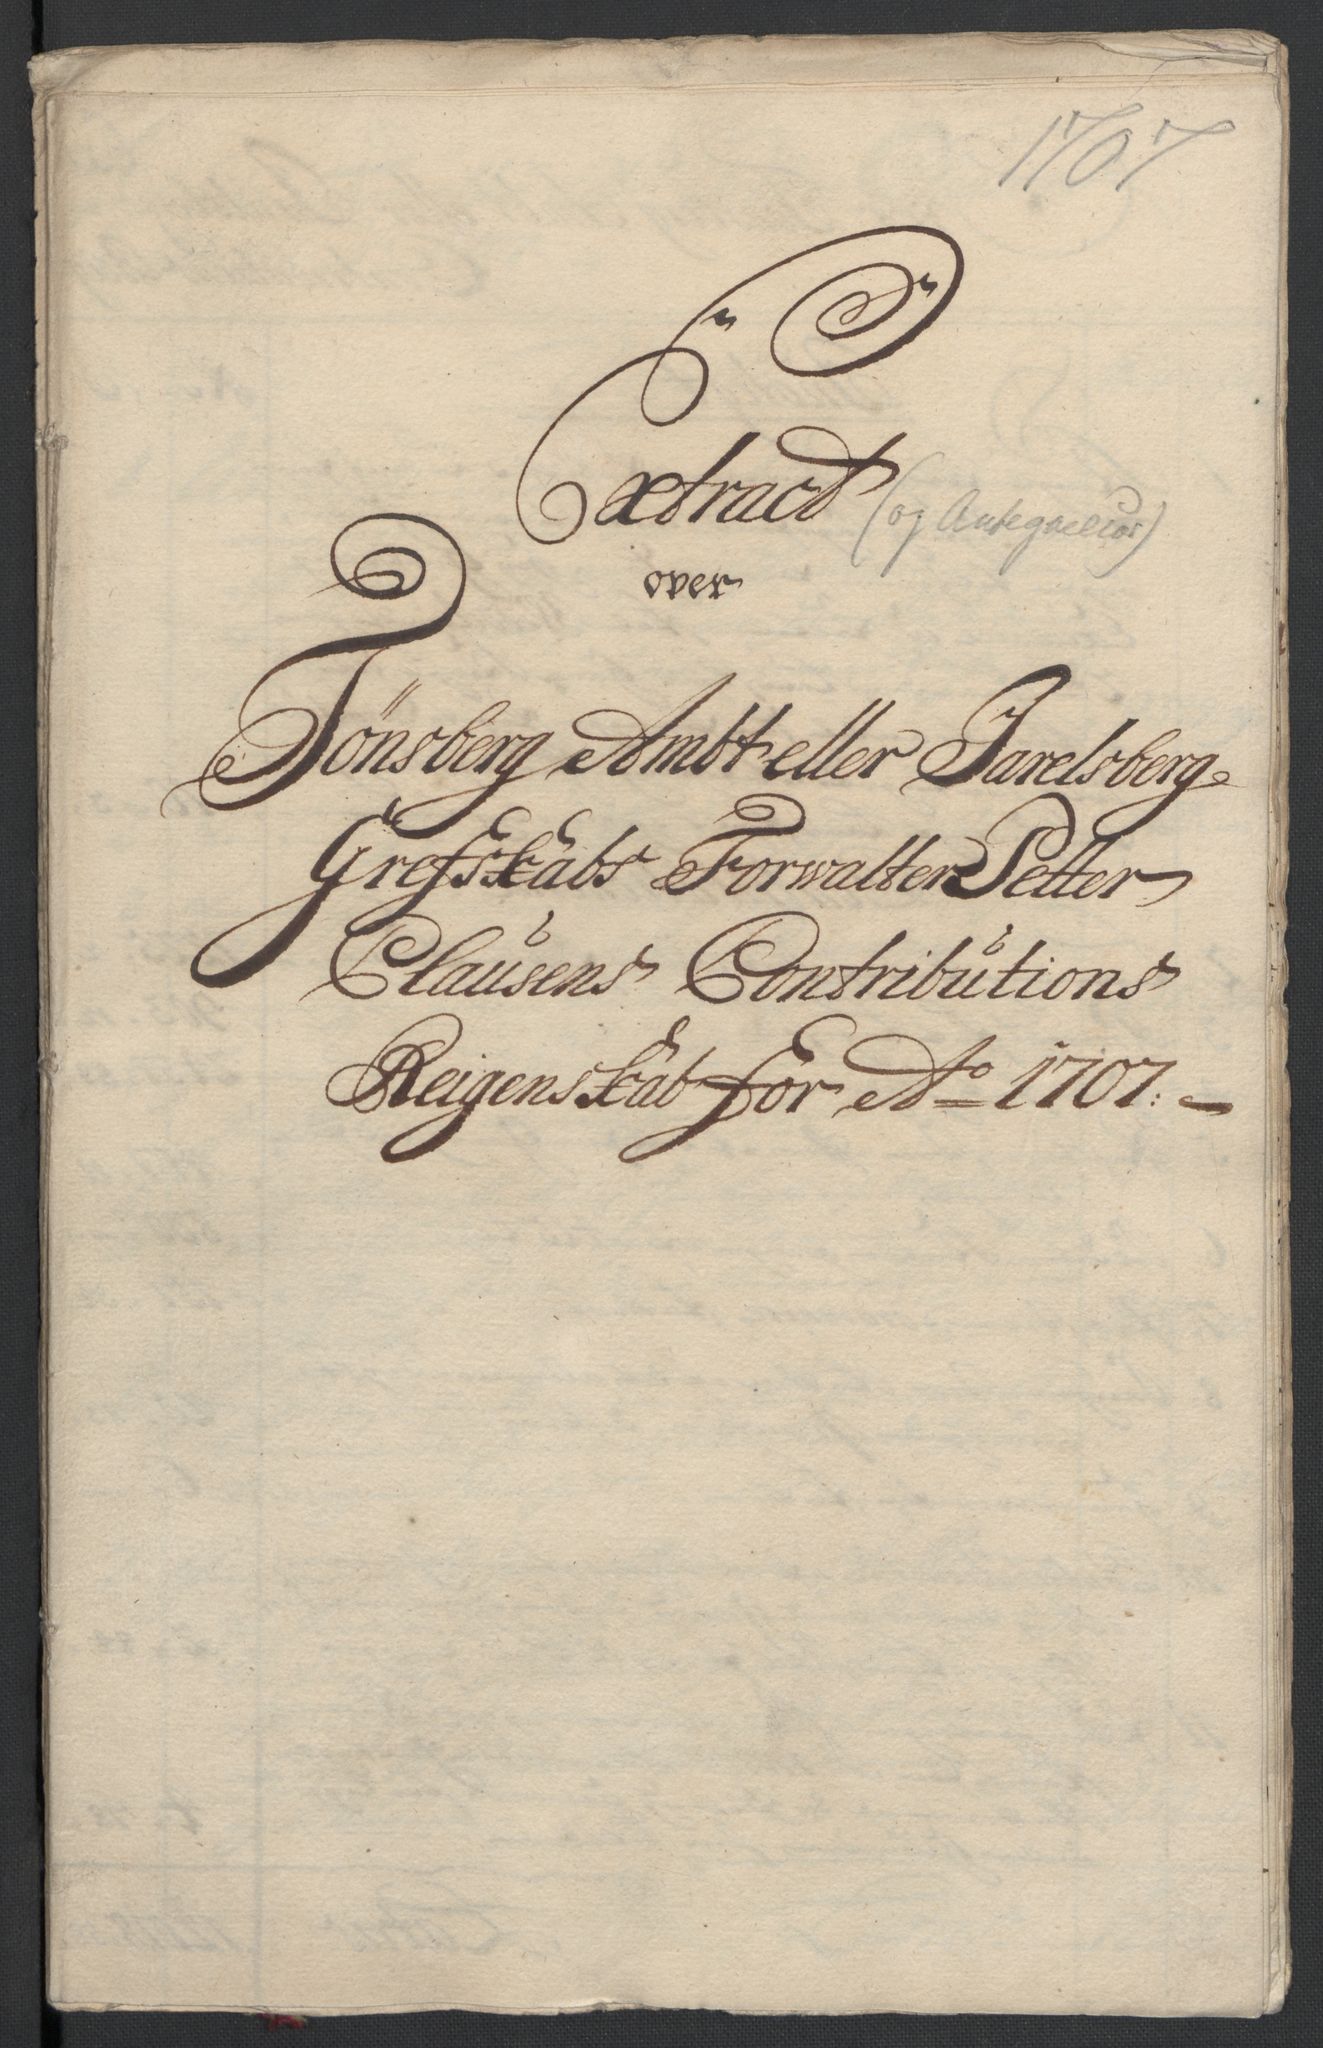 1707
Extract (og Antegnelser)
over
Tönsberg Ambt eller Jarelsberg
Grefskabs Forwalter Petter
Clausens Contributions
Reigenskab for Ao 1707.